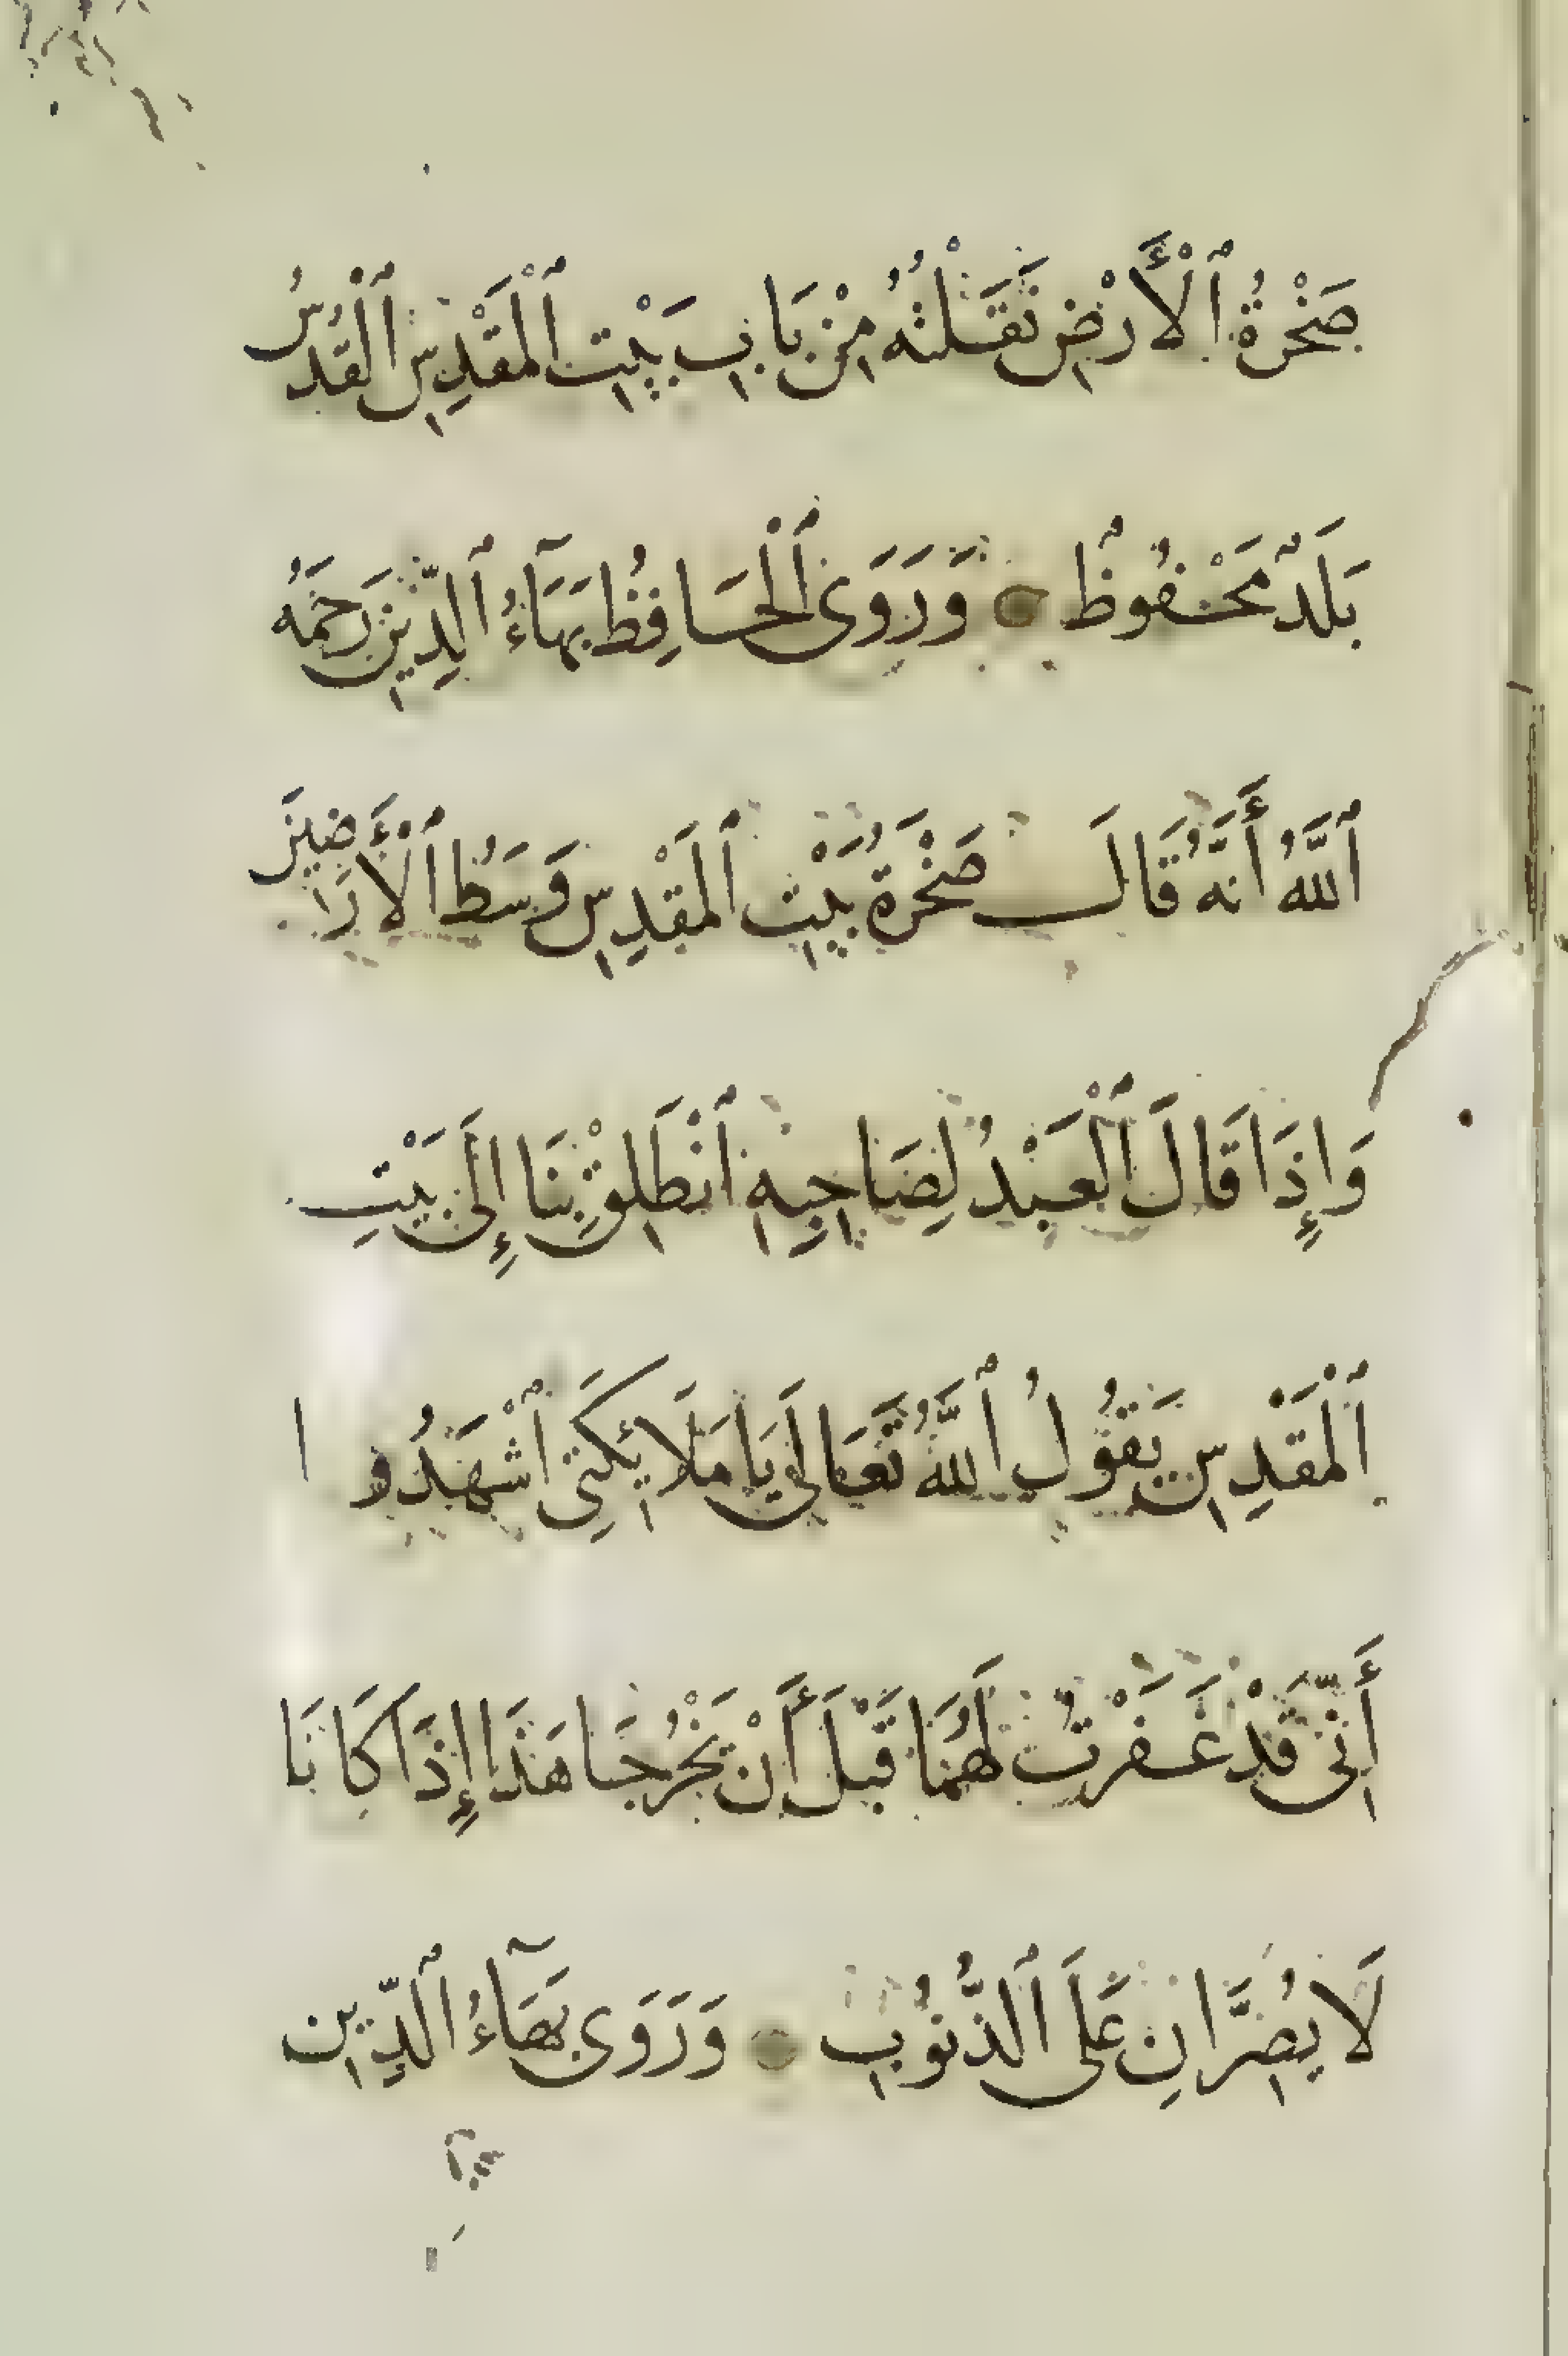 صَخْرَةُ ٱلْأَرْضِ نَقَلْتُهُ مِنْ بَابِ بَيْتِ ٱلْمَقْدِسِ ٱلْقُدْسُ
بَلَدٌ مَحْفُوظٌ وَرَوَى ٱلْحَافِظُ بَهَآءُ ٱلدِّينِ رَحِمَهُ
ٱللَّهُ أَنَّهُ قَالَ صَخْرَةُ بَيْتِ ٱلْمَقْدِسِ وَسَطُ ٱلْأَرَاضِينَ
وَإِذَا قَالَ ٱلْعَبْدُ لِصَاحِبِهِ ٱنْطَلِقْ بِنَا إِلَى بَيْتِ
ٱلْمَقْدِسِ يَقُولُ ٱللَّهُ تَعَالَى يَا مَلَايِكَتِى ٱشْهَدُوا
أَنِّى قَدْ غَفَرْتُ لَهُمَا قَبْلَ أَنْ يَخْرُجَا هَذَا إِذَا كَانَا
لَا يُصِرَّانِ عَلَى ٱلذُّنُوبِ وَرَوَى بَهَآءُ ٱلدِّينِ